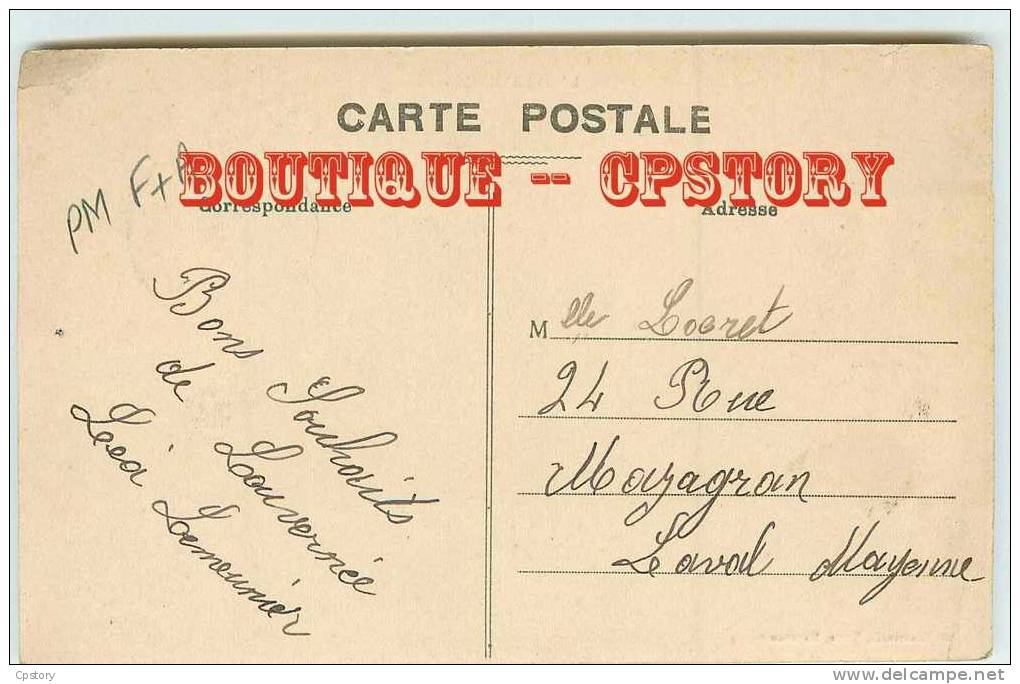 CARTE POSTALE
BOUTIQUE -- CPSTORY
PM F+A
Correspondance
Adresse
Bons Souhaits
de Louvernée
Léa Lemeunier
Mlle Locret
24 Rue
Mazagran
Laval Mayenne
Cpstory
www.delcampe.net